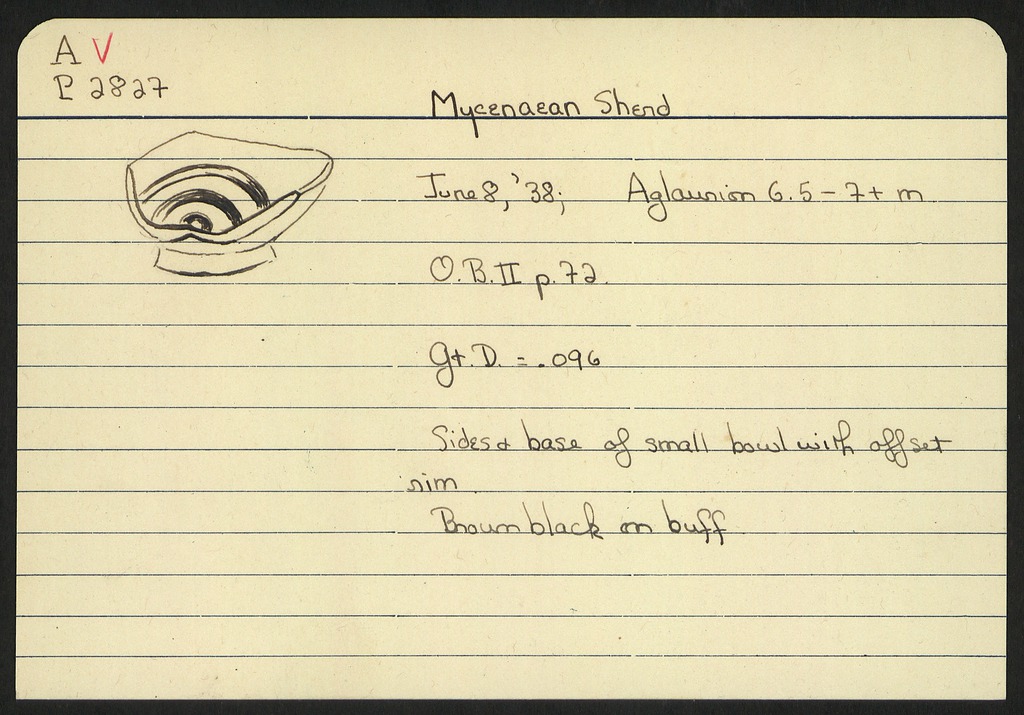 A V
P 2827
Mycenaean Sherd
June 8, '38; Aglaurion 6.5 - 7+ m
O.B. II p. 72.
Gt. D. = .096
Sides & base of small bowl with offset
rim
Brown black on buff